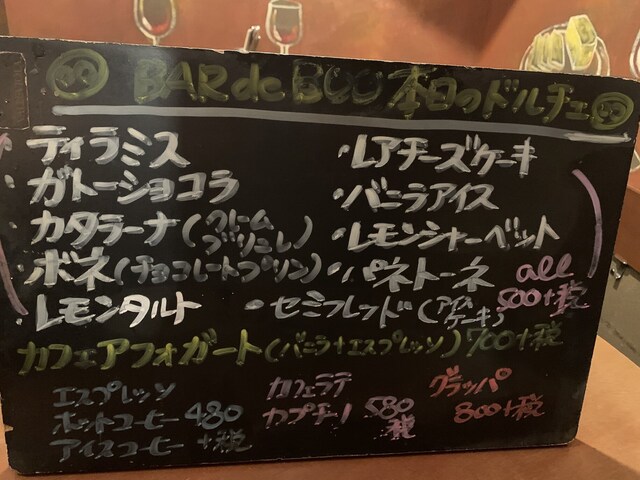 BAR de BOO 本日のドルチェ
ティラミス
・ガトーショコラ
・カタラーナ(クレームブリュレ)
・ボネ(チョコレートプリン)
・レモンタルト
・レアチーズケーキ
・バニラアイス
・レモンシャーベット
・パネトーネ
・セミフレッド(アイスケーキ)
all 500+税
カフェアフォガート(バニラ+エスプレッソ)700+税
エスプレッソ
ホットコーヒー 480
アイスコーヒー +税
カフェラテ
カプチーノ 580
税
グラッパ
800+税